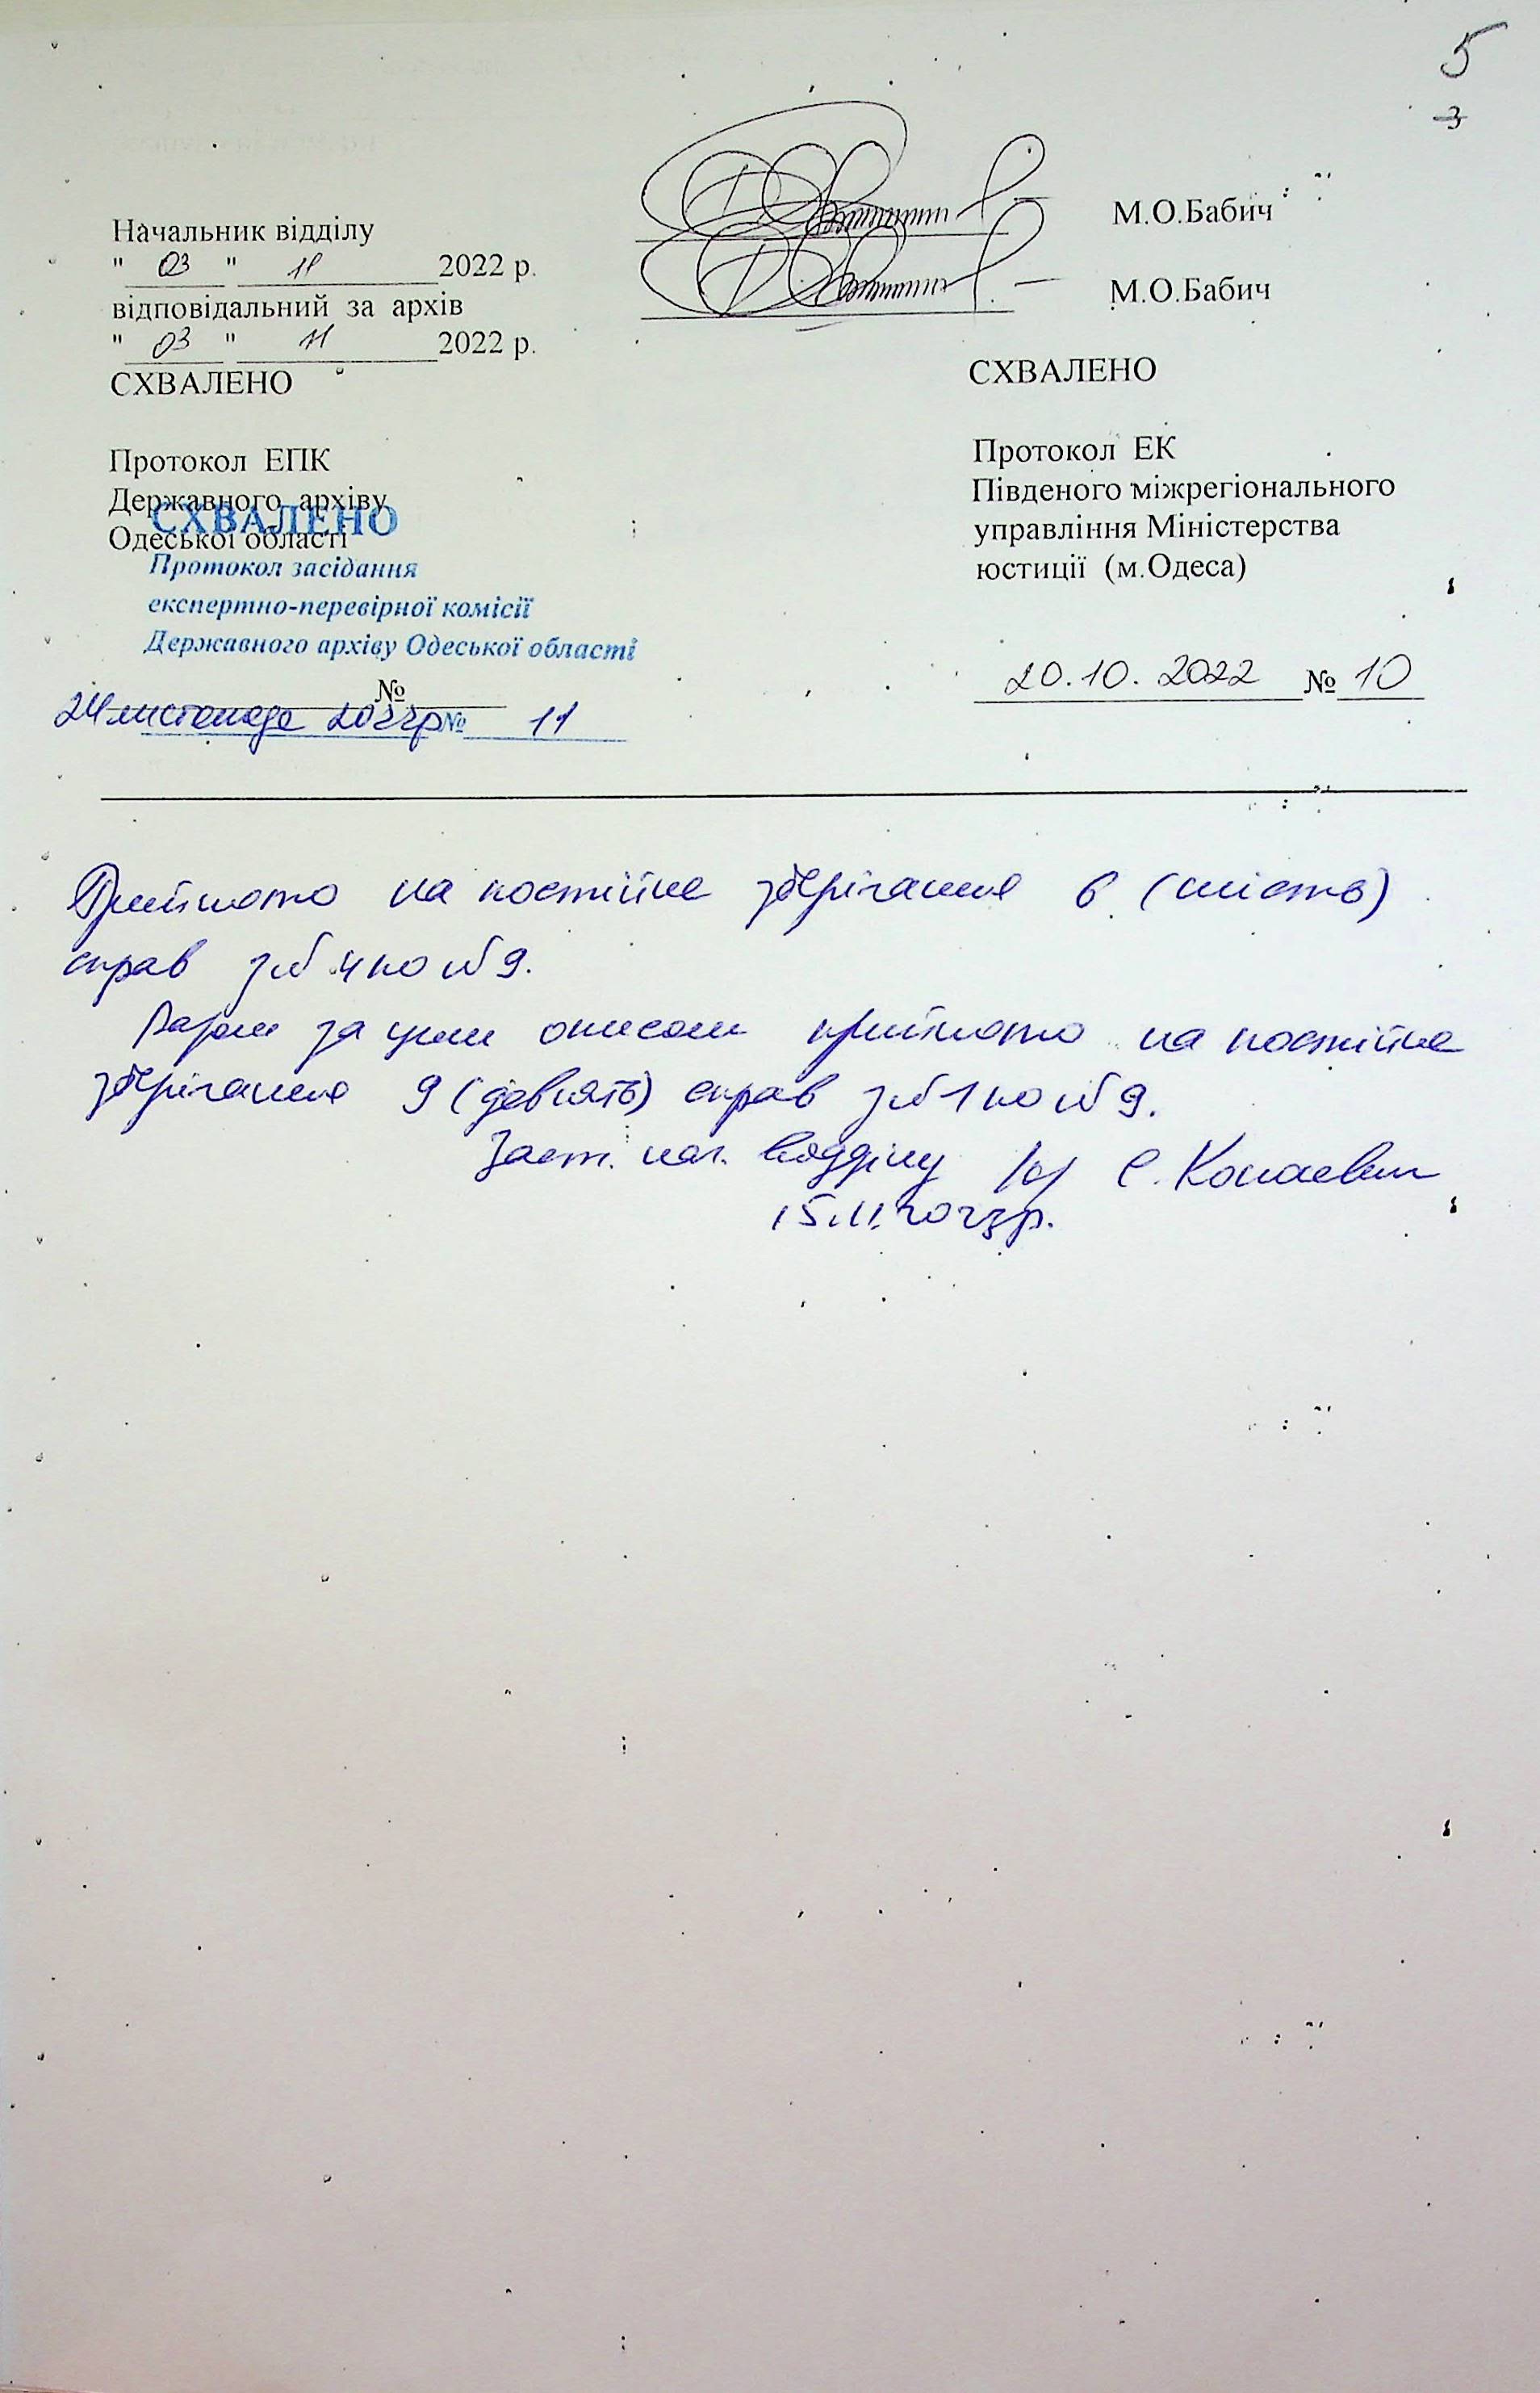 5
3
Начальник відділу
" 03 " 11 2022 р. М.О.Бабич
відповідальний за архів
" 03 " 11 2022 р. М.О.Бабич
СХВАЛЕНО
Протокол ЕПК
Державного архіву
Одеської області
СХВАЛЕНО
Протокол засідання
експертно-перевірної комісії
Державного архіву Одеської області
№
24 листопада 2022р № 11
СХВАЛЕНО
Протокол ЕК
Південого міжрегіонального
управління Міністерства
юстиції (м.Одеса)
20.10. 2022 № 10
Прийнято на постійне зберігання 6 (шість)
справ з № 4 по № 9.
Разом за цим описом прийнято на постійне
зберігання 9 (девять) справ з № 1 по № 9.
Заст. нач. відділу С.
15.11.2023р.